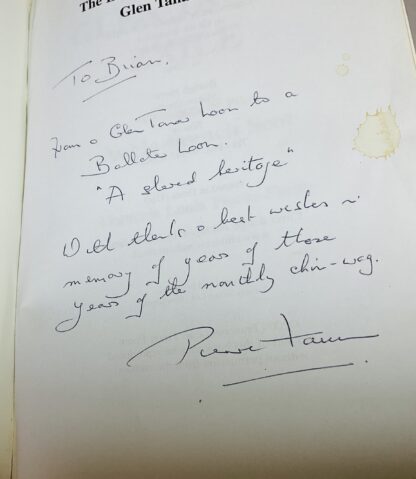 Glen Tana
To Brian.
From a Glen Tanar Loon to a
Ballater Loon.
"A shared heritage"
With thanks & best wishes in
memory of years of those
years of the monthly chin-wag.
Pierre